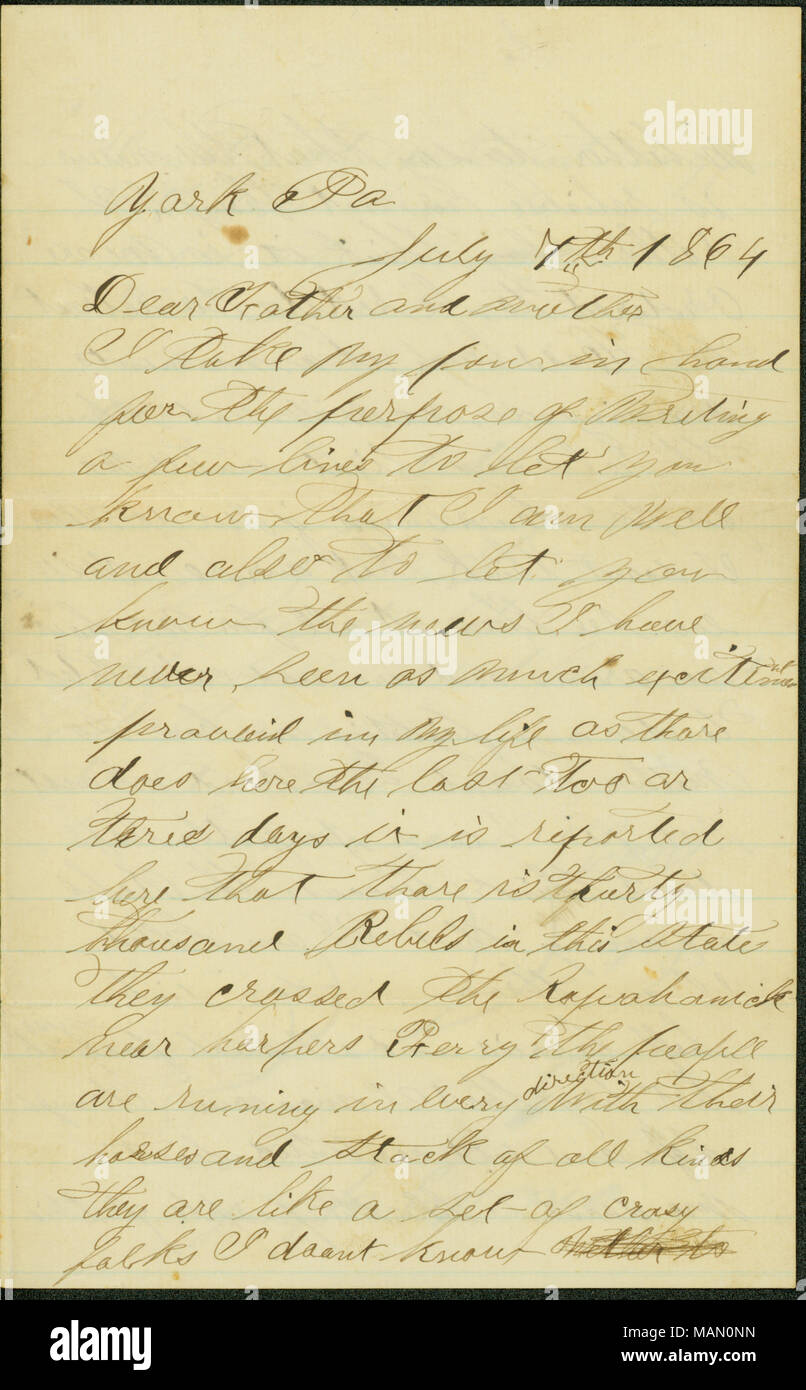 York Pa
July 7th 1864
Dear Father and Mother
I take my pen in hand
for the purpose of Writing
a few lines to let you
know that I am Well
and also to let you
know the news I have
never seen as much exitement
in my life as thare
does here the last too or
three days it is reported
here that thare is thurty
thousand Rebels in this State
they crossed the Rapahanick
near harpers Ferry the people
are runing in every direction With their
horses and stock of all kinds
they are like a set of crasy
folks I doant know whether to
alamy
Image ID: MA0NNN
www.alamy.com